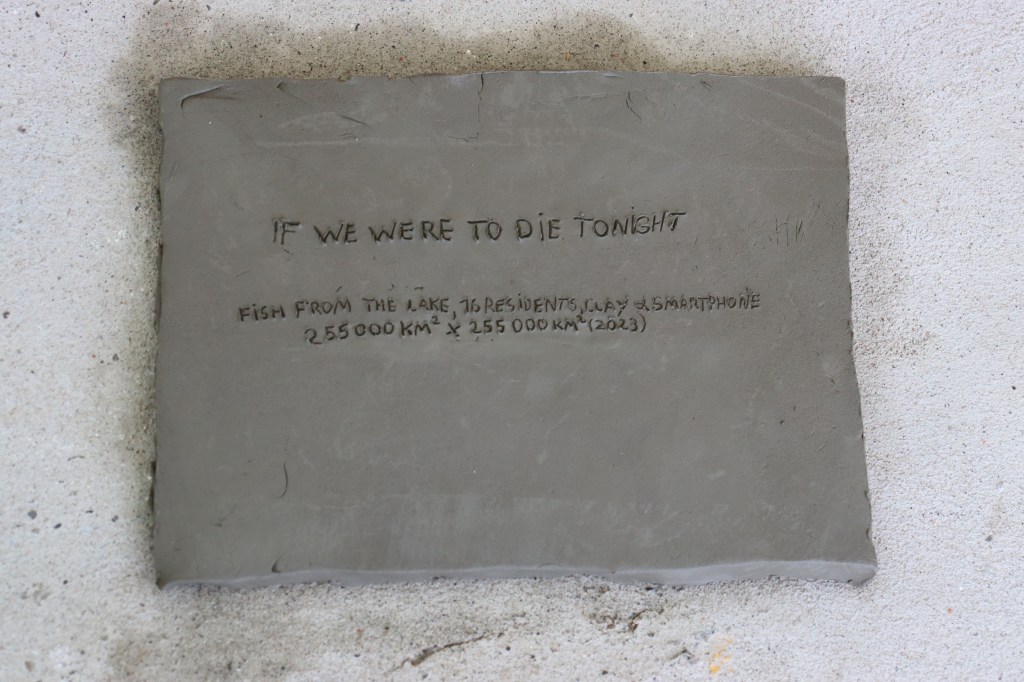 IF WE WERE TO DiE TONiGHT
FiSH FROM THE LAKE, 16 RESiDENTS, CLAY & SMARTPHONE
255 000 KM² X 255 000 KM² (2023)